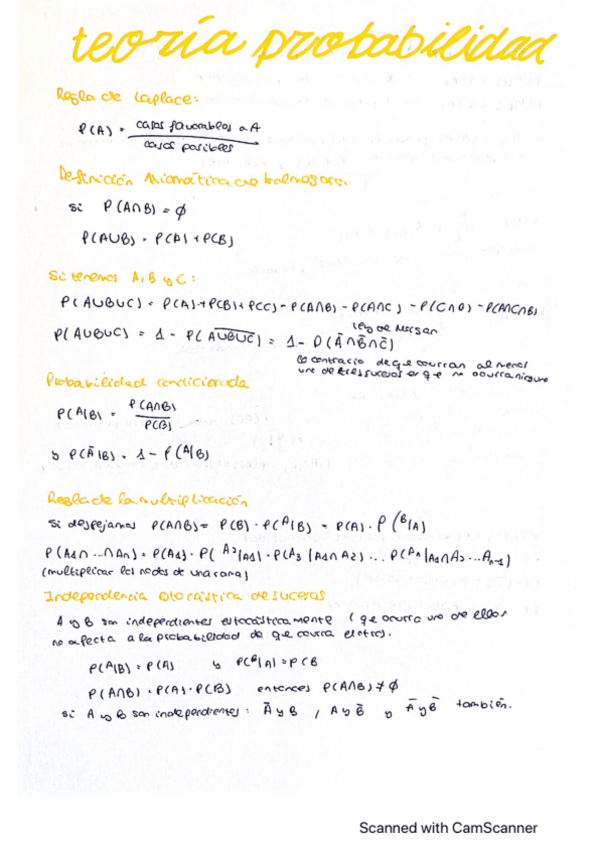 teoría probabilidad
Regla de Laplace:
P(A) = casos favorables a A
casos posibles
Definición Axiomática de Kolmogorov:
si P(A∩B) = ∅
P(A∪B) = P(A) + P(B)
Si tenemos A, B y C:
P(A∪B∪C) = P(A)+P(B)+P(C)-P(A∩B)-P(A∩C)-P(C∩B)-P(A∩C∩B)
ley de Morgan
P(A∪B∪C) = 1 - P(A̅∪̅B̅∪̅C̅) = 1 - P(Ā∩B̄∩C̄)
lo contrario de que ocurran al menos
uno de tres sucesos es que no ocurra ninguno
Probabilidad condicionada
P(A|B) = P(A∩B)
P(B)
y P(Ā|B) = 1 - P(A|B)
Regla de la multiplicación
Si despejamos P(A∩B) = P(B) · P(A|B) = P(A) · P(B|A)
P(A1∩...∩An) = P(A1) · P(A2|A1) · P(A3|A1∩A2) ... P(An|A1∩A2...An-1)
(multiplicar los nodos de una rama)
Independencia estocástica de sucesos
A y B son independientes estocásticamente (que ocurra uno de ellos
no afecta a la probabilidad de que ocurra el otro).
P(A|B) = P(A) y P(B|A) = P(B
P(A∩B) = P(A) · P(B) entonces P(A∩B) ≠ ∅
si A y B son independientes: Ā y B, A y B̄ y Ā y B̄ también.
Scanned with CamScanner